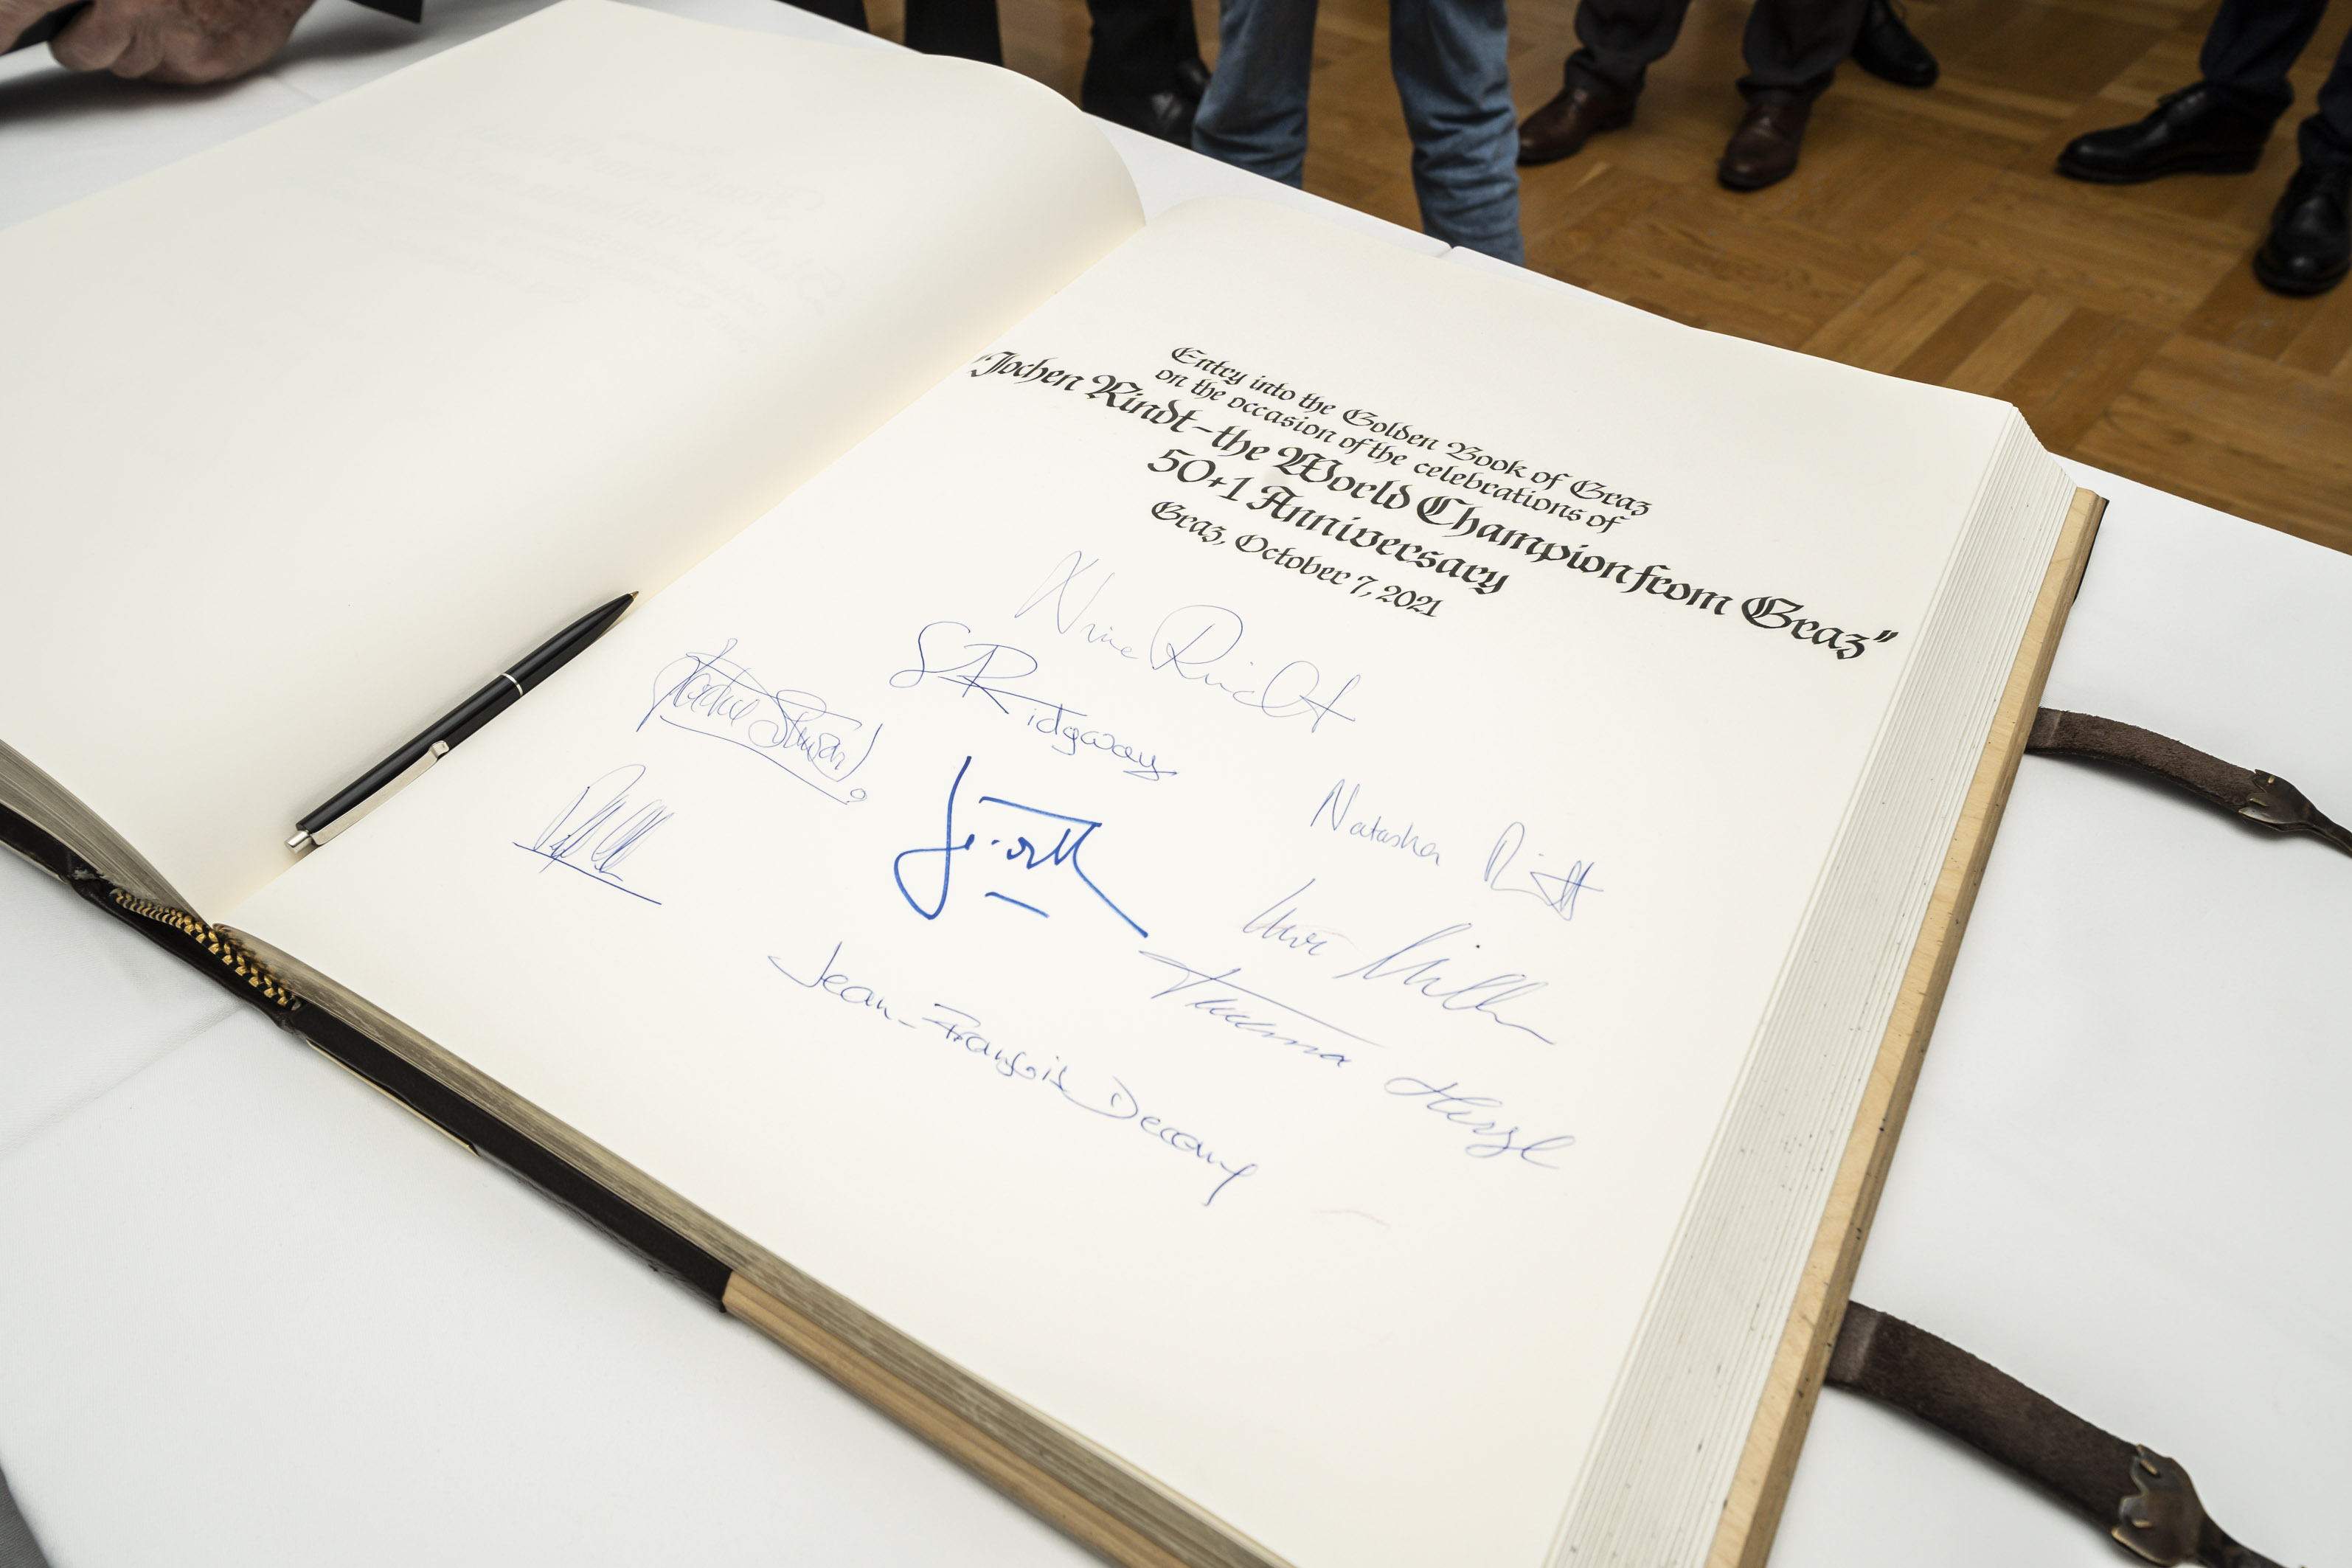 Entry into the Golden Book of Graz
on the occasion of the celebrations of
"Jochen Rindt - the World Champion from Graz"
50+1 Anniversary
Graz, October 7, 2021
Nina Rindt
S Ridgway
Jackie Stewart
Natasha Rindt
Jean-François Decaux